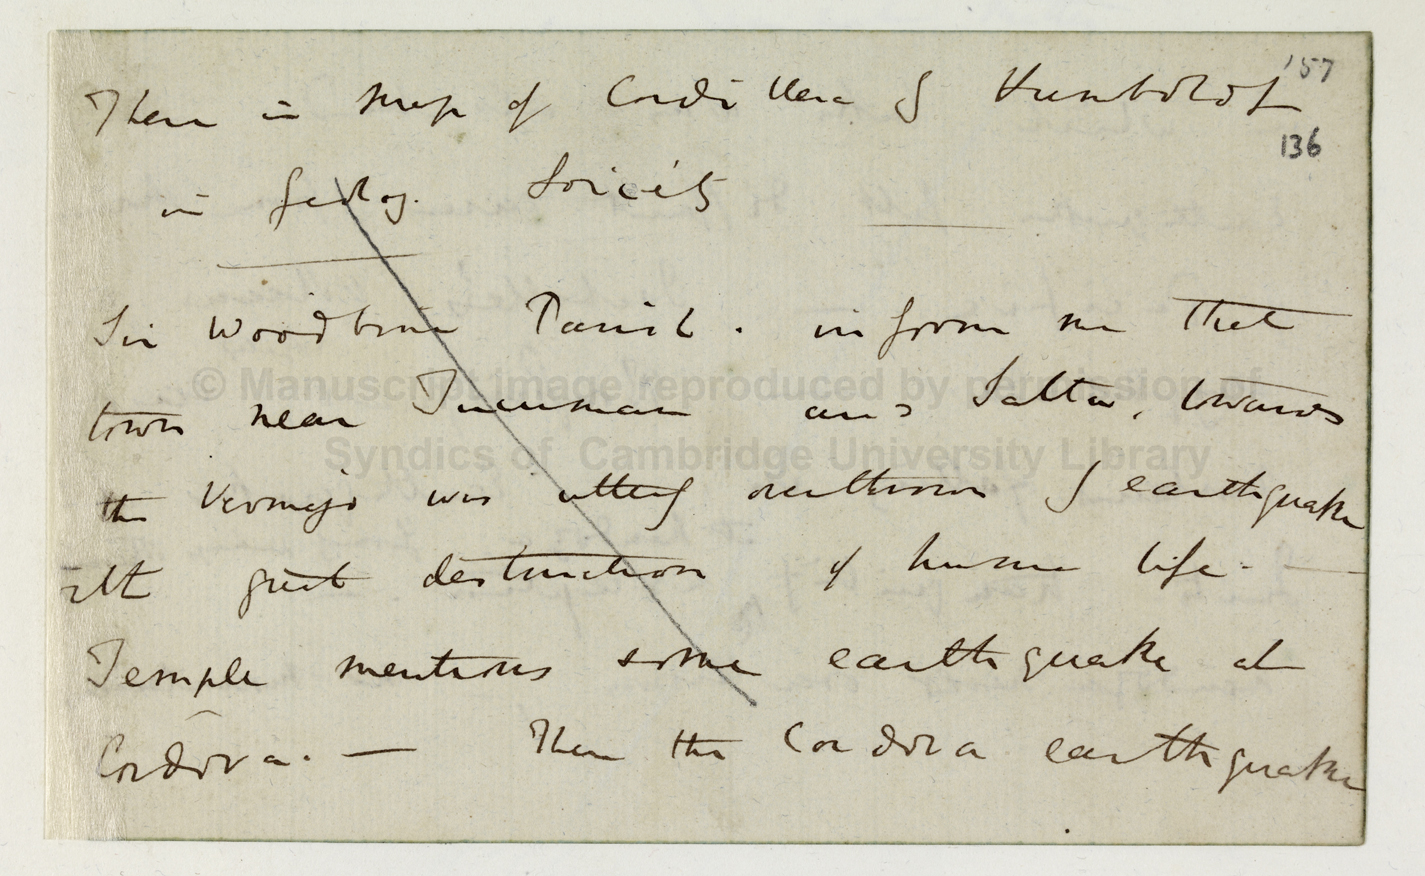 157
There is map of Cordillera by Humboldt
136
in Geolog. Society
Sir Woodbine Parish. informs me that
town near Tucuman and Salta, towards
the Vermejo was utterly overthrown by earthquake
with great destruction of human life. —
Temple mentions some earthquake at
Cordova. — Then the Cordova earthquake
© Manuscript image reproduced by permission of
Syndics of Cambridge University Library